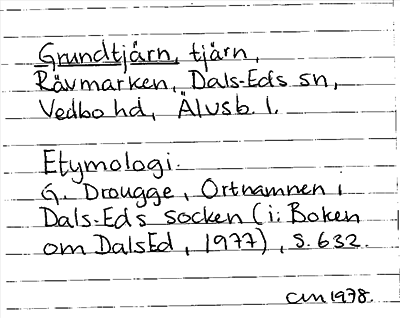 Grundtjärn, tjärn,
Rävmarken, Dals-Eds sn,
Vedbo hd, Älvsb. l.
Etymologi.
G. Drougge, Ortnamnen i
Dals-Eds socken (i: Boken
om DalsEd, 1977), s. 632.
1978.